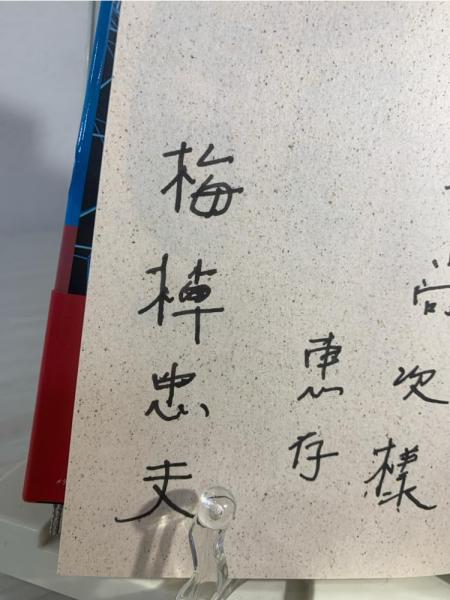 次様
恵存
梅棹忠夫